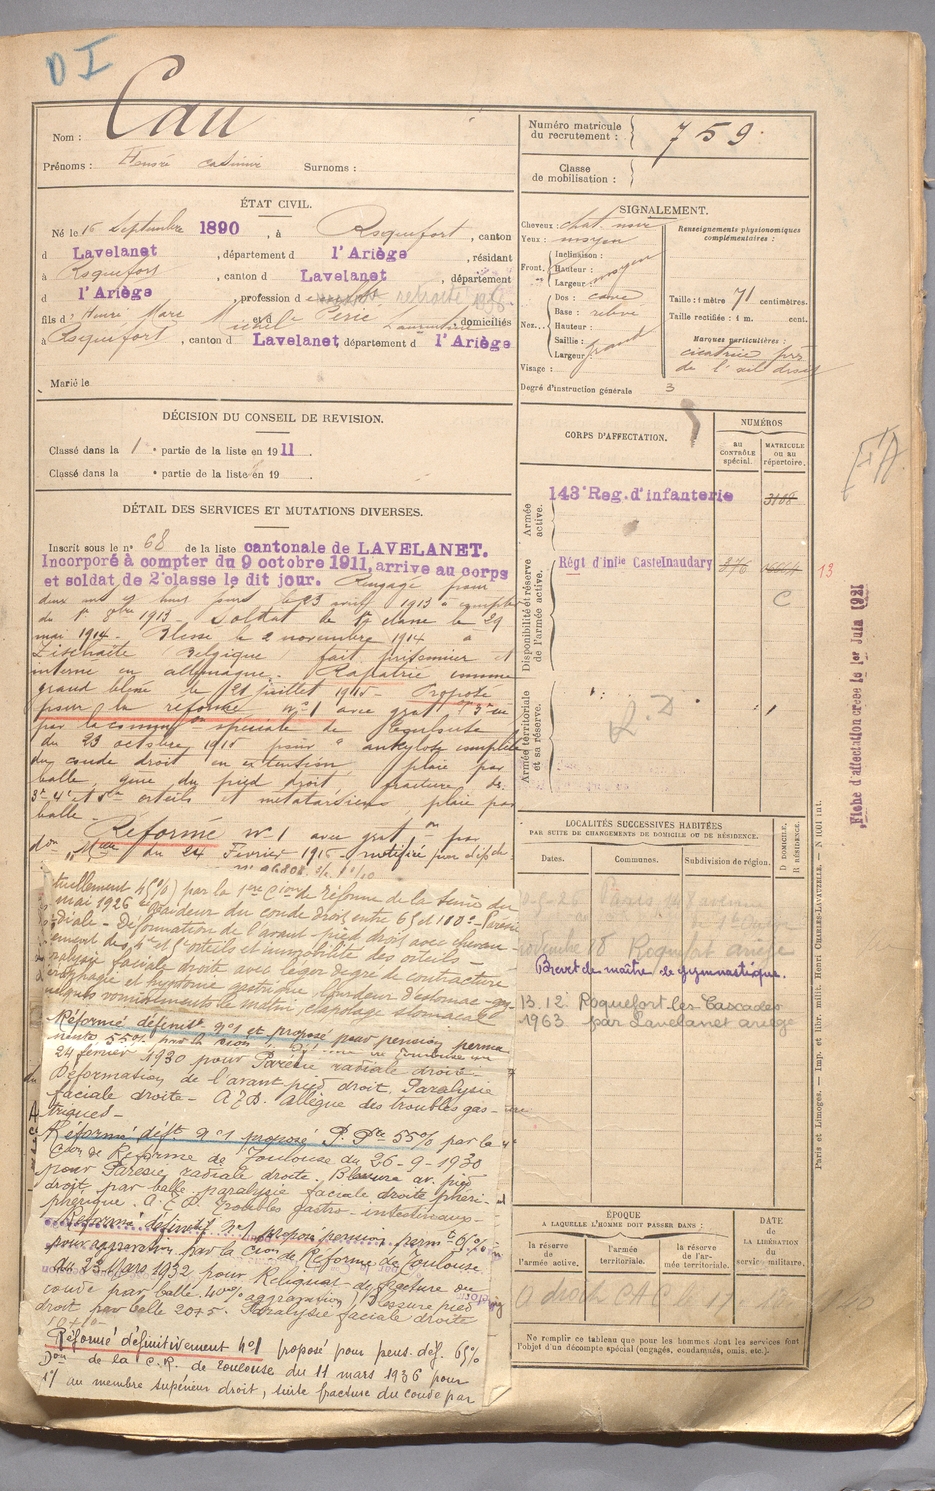 D I
Nom : Cau
Numéro matricule du recrutement : 759
Prénoms : Henri Casimir Surnoms :
Classe de mobilisation :
ÉTAT CIVIL.
Né le 16 Septembre 1890, à Roquefort, canton
d Lavelanet, département d l'Ariège, résidant
à Roquefort, canton d Lavelanet, département
d l'Ariège, profession d retraité
fils d Henri Marc Michel et d Périé Laurentine, domiciliés
à Roquefort, canton d Lavelanet, département d l'Ariège
Marié le
SIGNALEMENT.
Cheveux : chat. noir
Yeux : moyen
Front. Inclinaison :
Hauteur : moyen
Largeur :
Nez. Dos : cave
Base : relevé
Hauteur :
Saillie : grand
Largeur :
Visage :
Renseignements physionomiques complémentaires :
Taille : 1 mètre 71 centimètres.
Taille rectifiée : 1 m. cent.
Marques particulières :
cicatrice près
de l'œil droit
Degré d'instruction générale 3
DÉCISION DU CONSEIL DE REVISION.
Classé dans la 1e partie de la liste en 1911
Classé dans la e partie de la liste en 19
DÉTAIL DES SERVICES ET MUTATIONS DIVERSES.
Inscrit sous le n° 68 de la liste cantonale de LAVELANET.
Incorporé à compter du 9 octobre 1911, arrive au corps
et soldat de 2e classe le dit jour. Rengagé pour
deux ans jours le 23 avril 1913 à compter
du 1er 8bre 1913 - Soldat de 1re classe le 29
mai 1914 - Blessé le 2 novembre 1914 à
Belgique, fait prisonnier et
interné en allemagne. Rapatrié comme
grand blessé le 21 juillet 1915 - Proposé
pour la réforme n° 1 avec grat.on
par la comm.on spéciale de Toulouse
du 23 octobre 1915 pour "ankylose complète
du coude droit en extension, plaie par
balle, gêne du pied droit, fracture des
3e 4e et 5e orteils et métatarsiens, plaie par
balle -
Réformé n° 1 avec grat.on par
d.on M.elle du 24 Février 1916 - notifiée par dépêche
tuellement 45%) par la 1ère C.ion de réforme de la Seine du
mai 1926 Raideur du coude droit entre 65 et 110° - Parésie
radiale - Déformation de l'avant-pied droit avec chevau-
ement des 4e et 5e orteils et immobilité des orteils -
paralysie faciale droite avec léger degré de contracture
érophagie et syndrome gastrique lourdeur d'estomac
quelques vomissements le matin, clapotage stomacal
Réformé définit.t n°1 et proposé pour pension perma
nente 55% par la C.ion de réforme de Toulouse du
24 février 1930 pour Parésie radiale droite
Déformation de l'avant pied droit. Paralysie
faciale droite - A.J.D. Allègue des troubles gas-
triques -
Réformé déf.t n°1 proposé P. P.te 55% par la
C.on de Réforme de Toulouse du 26-9-1930
pour Parésie radiale droite. Blessure av. pied
droit par balle. paralysie faciale droite phéri-
phérique. A.J.D. Troubles gastro-intestinaux -
Réformé définitif n°1 proposé pension perm.te 65%
pour aggravation par la C.ion de Réforme de Toulouse
du 23 Mars 1932 pour Reliquat de fracture du
coude par balle. 40% aggravation / Blessure pied
droit par balle 20+5. Paralysie faciale droite
10+10 -
Réformé définitivement n°1 proposé pour pens. déf. 65%
D.on de la C.R. de Toulouse du 11 mars 1936 pour
1°/ au membre supérieur droit, suite fracture du coude par
CORPS D'AFFECTATION.
NUMÉROS
au CONTRÔLE spécial.
MATRICULE ou au répertoire.
Armée active.
143e Reg. d'infanterie 3168
Disponibilité et réserve de l'armée active.
Régt d'infie Castelnaudary 876 13
C
Armée territoriale et sa réserve.
Fiche d'affectation créée le 1er Juin 1921
LOCALITÉS SUCCESSIVES HABITÉES
PAR SUITE DE CHANGEMENTS DE DOMICILE OU DE RÉSIDENCE.
Dates. Communes. Subdivision de région.
D DOMICILE. R RÉSIDENCE.
Paris, 148 avenue
Roquefort ariège
Brevet de maître de gymnastique.
13.12. Roquefort-les-Cascades
1963 par Lavelanet ariège
ÉPOQUE
A LAQUELLE L'HOMME DOIT PASSER DANS :
la réserve de l'armée active.
l'armée territoriale.
la réserve de l'armée territoriale.
DATE DE LA LIBÉRATION du service militaire.
A droit C A C
Ne remplir ce tableau que pour les hommes dont les services
font l'objet d'un décompte spécial (engagés, condamnés, omis, etc.).
Paris et Limoges. — Imp. et libr. milit. Henri CHARLES-LAVAUZELLE. — N 1001 int.